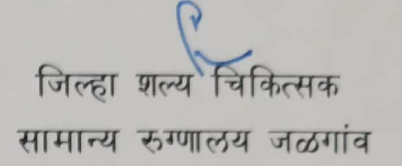 जिल्हा शल्य चिकित्सक
सामान्य रुग्णालय जळगांव